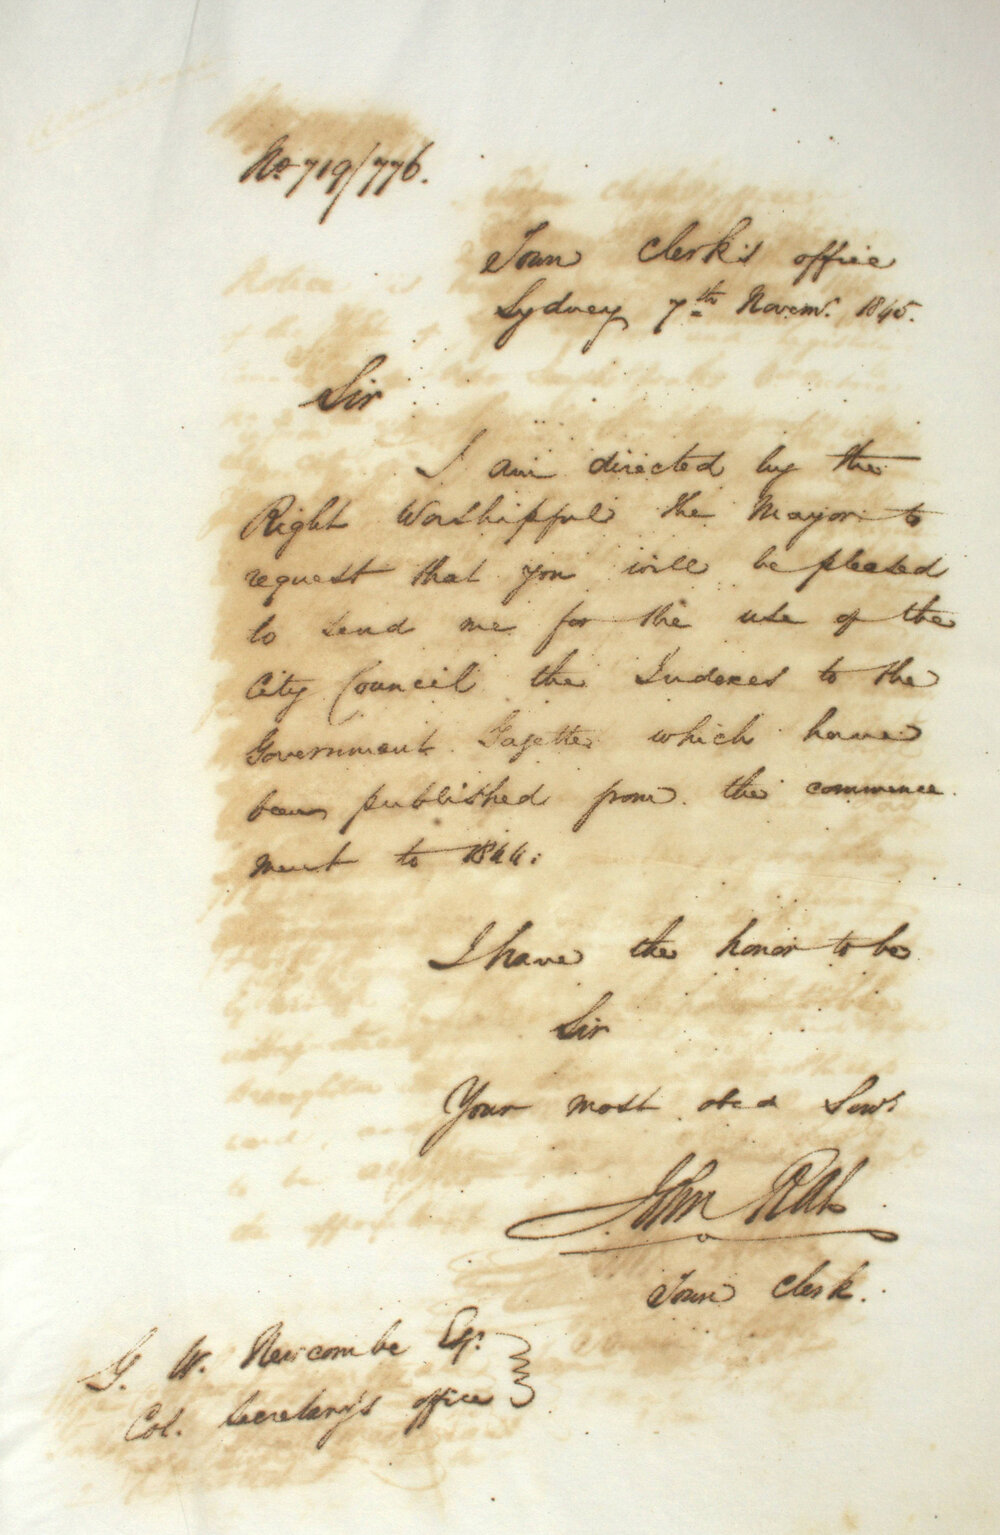 No. 719/776.
Town Clerk's office
Sydney 7th Novemr. 1845.
Sir
I am directed by the
Right Worshipful the Mayor to
request that you will be pleased
to send me for the use of the
City Council the Indexes to the
Government Gazette which have
been published from the commence
ment to 1844.
I have the honor to be
Sir
Your most obed Servt
John Rae
Town Clerk.
G. W. Newcombe Esqr.
Col. Secretary's office